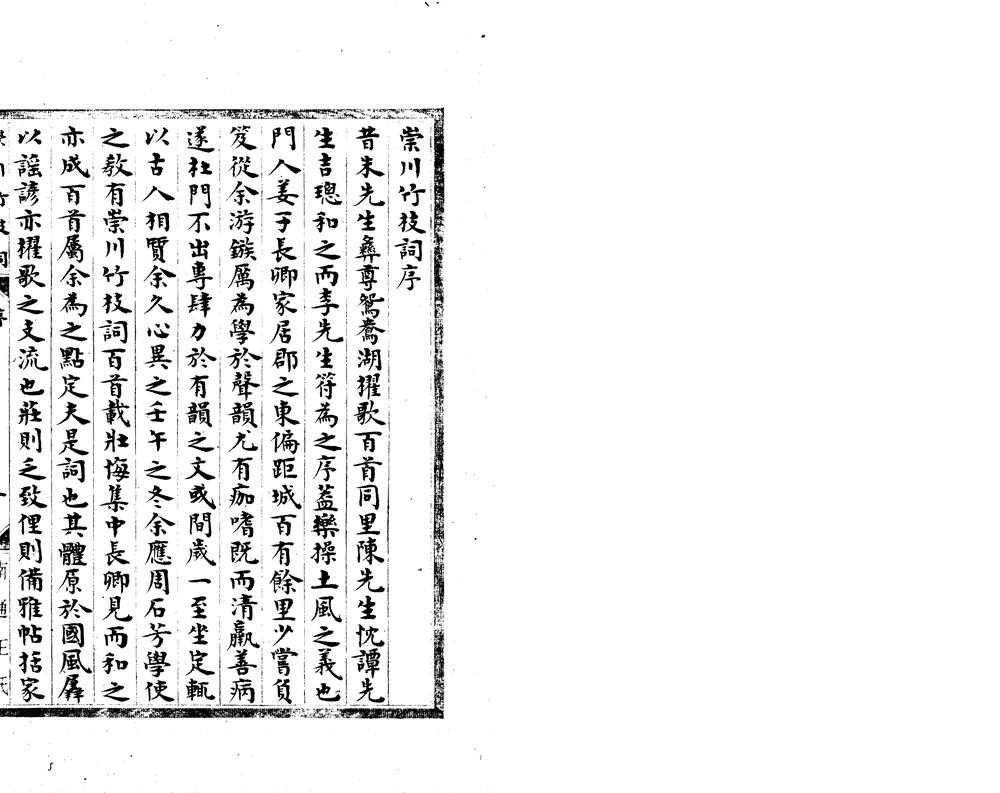 崇川竹枝詞序
昔朱先生彝尊鴛鴦湖櫂歌百首同里陳先生忱譚先
生吉璁和之而李先生符為之序葢樂操土風之義也
門人姜子長卿家居郡之東偏距城百有餘里少嘗負
笈從余游鏃厲為學於聲韻尤有痂嗜既而清羸善病
遂杜門不出專肆力於有韻之文或間歲一至坐定輒
以古人相質余久心異之壬午之冬余應周石芳學使
之敎有崇川竹枝詞百首載壯悔集中長卿見而和之
亦成百首屬余為之點定夫是詞也其體原於國風羼
以謡諺亦櫂歌之支流也莊則乏致俚則備雅帖括家
崇川竹枝詞 序 一 南通王氏